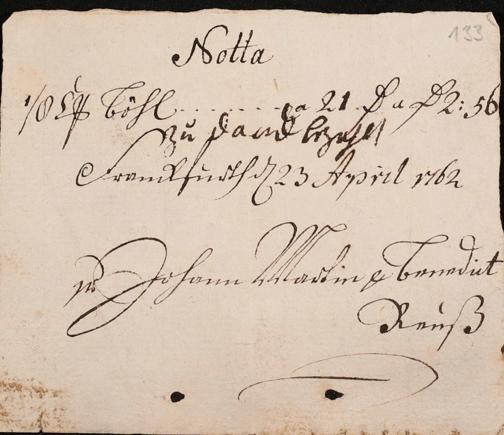 133
Notta
1/8 Böhl ........ a 21 f 2:56
Zu Danck bezahlt
Franckfurth d 23 April 1762
Johann Martin & Benedict
Reuß